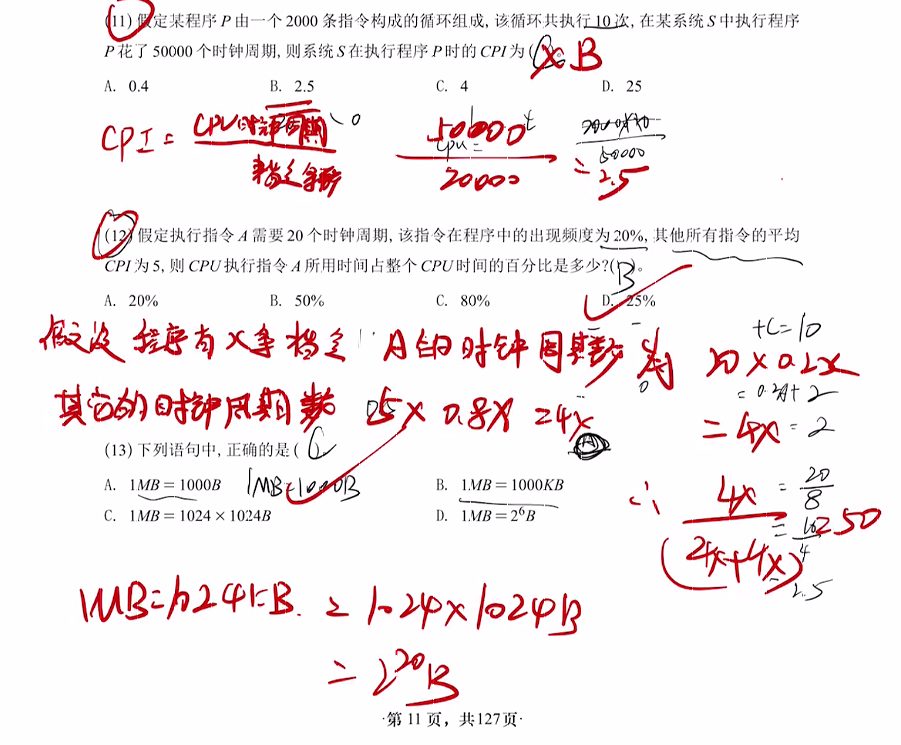 (11) 假定某程序 P 由一个 2000 条指令构成的循环组成, 该循环共执行 10 次, 在某系统 S 中执行程序
P 花了 50000 个时钟周期, 则系统 S 在执行程序 P 时的 CPI 为 (
× B
A. 0.4 B. 2.5 C. 4 D. 25
CPI = CPU时钟周期
50000
20000
50000
= 2.5
(12) 假定执行指令 A 需要 20 个时钟周期, 该指令在程序中的出现频度为 20%, 其他所有指令的平均
CPI 为 5, 则 CPU 执行指令 A 所用时间占整个 CPU 时间的百分比是多少?( B )。
A. 20% B. 50% C. 80% D. 25%
假设程序有 X 条指令 A的时钟周期数为 20×0.2x
= 4x
其它的时钟周期数 5×0.8x = 4x
+C=10
= 2
(13) 下列语句中, 正确的是 ( C
A. 1MB = 1000B 1MB=1000B B. 1MB = 1000KB
C. 1MB = 1024 × 1024B D. 1MB = 2⁶B
∴ 4x
(4x+4x)
= 20
8
= 10
4
2.5
50
1MB=1024KB. = 1024×1024B
= 2²⁰B
·第 11 页, 共127页·